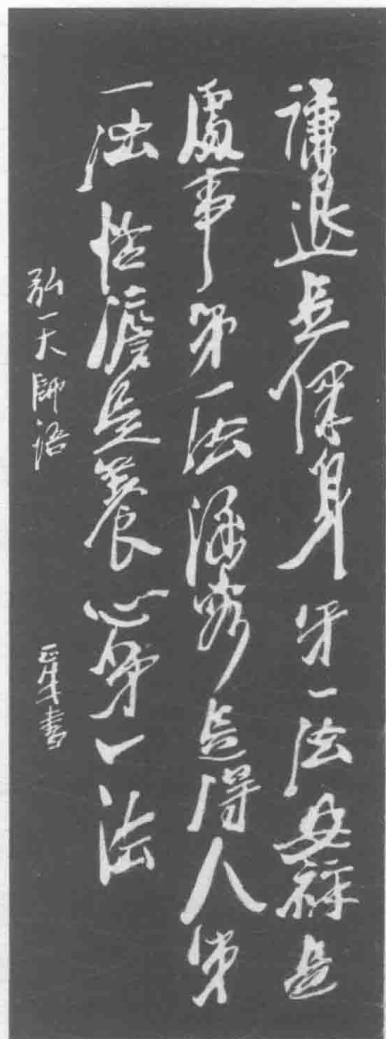 谦退是保身第一法安祥是
處事第一法涵容是得人第
一法恬澹是養心第一法
弘一大師語
書